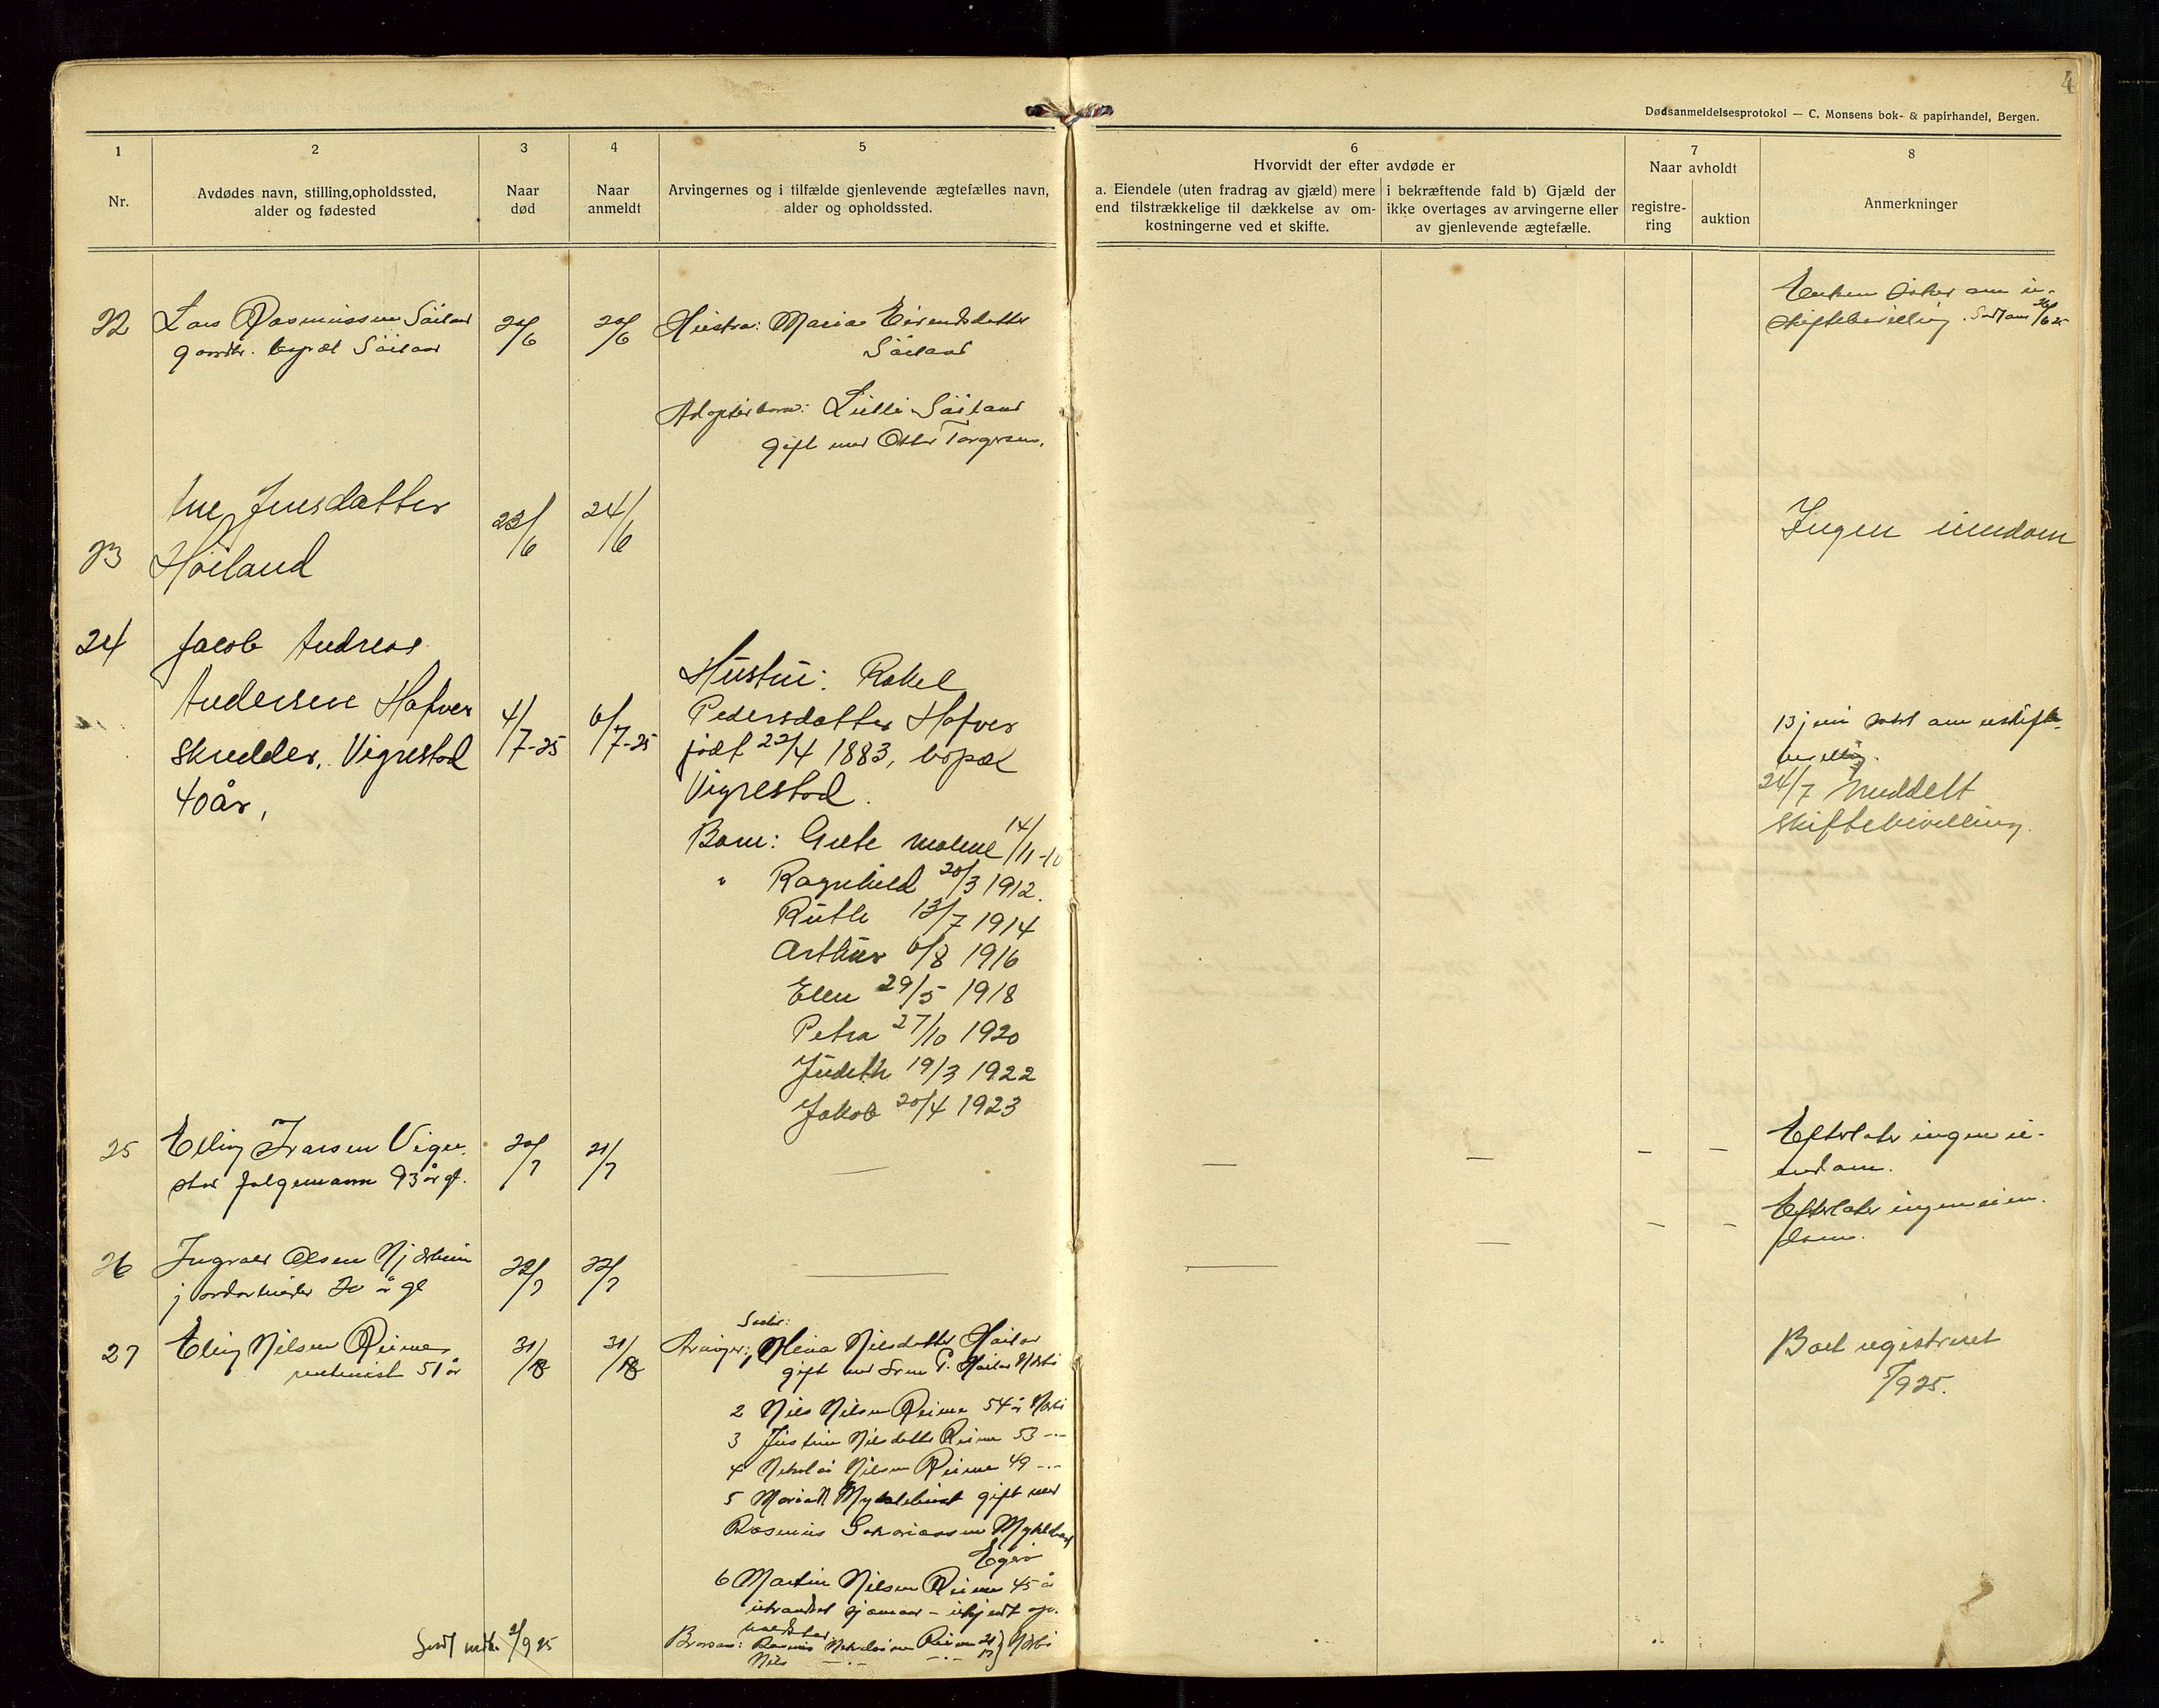 4
Dødsanmeldelsesprotokol — C. Monsens bok- & papirhandel, Bergen.
1
Nr.
2
Avdødes navn, stilling, opholdssted,
alder og fødested
3
Naar
død
4
Naar
anmeldt
5
Arvingernes og i tilfælde gjenlevende ægtefælles navn,
alder og opholdssted.
6
Hvorvidt der efter avdøde er
a. Eiendele (uten fradrag av gjæld) mere
end tilstrækkelige til dækkelse av om-
kostningerne ved et skifte.
i bekræftende fald b) Gjæld der
ikke overtages av arvingerne eller
av gjenlevende ægtefælle.
7
Naar avholdt
registre-
ring
auktion
8
Anmerkninger
22
Lars Rasmussen
gaardbr.
Hustru: Maria
Adoptivbarn: Lilli
gift med Otto Torgersen.
Enken søker om u-
skiftebevilling.
23
Ane Jensdatter
Høiland
23/6
24/6
Ingen eiendom
24
Jacob Andreas
Andersen Hafver
skredder, Vigrestad
40 år,
4/7-25
6/7-25
Hustru: Rakel
Pedersdatter Hafver
født 22/4 1883, bopæl
Vigrestad.
Barn: Grete Malene 14/11-10
" Ragnhild 20/3 1912.
Ruth 13/7 1914
Arthur 6/8 1916
Elen 29/5 1918
Petra 27/10 1920
Judith 19/3 1922
Jakob 20/4 1923
13 juni søkt om uskifte-
bevilling.
24/7 meddelt
skiftebevilling.
25
Elling Ivarsen Vigre-
stad folgemann 93 år gl.
20/7
21/7
—
—
—
—
—
Efterlater ingen ei-
endom.
26
Ingvald Olsen
jordarbeider
22/7
—
—
—
—
—
Efterlater ingen eien-
dom.
27
Elling Nilsen Reime
rentenist 51 år
31/8
31/8
Arvinger: 1, Olena Nilsdatter
gift med
2 Nils Nilsen Reime 54 år
3 Justine Nilsdatter Reime 53 -"-
4 Nikolai Nilsen Reime 49 -"-
5 gift med
Rasmus Sakariassen
6 Martin Nilsen Reime 45 år
Rasmus Nikolaisen Reime 21
Nils -"- -"- 17
Boet registreret
5/9 25.